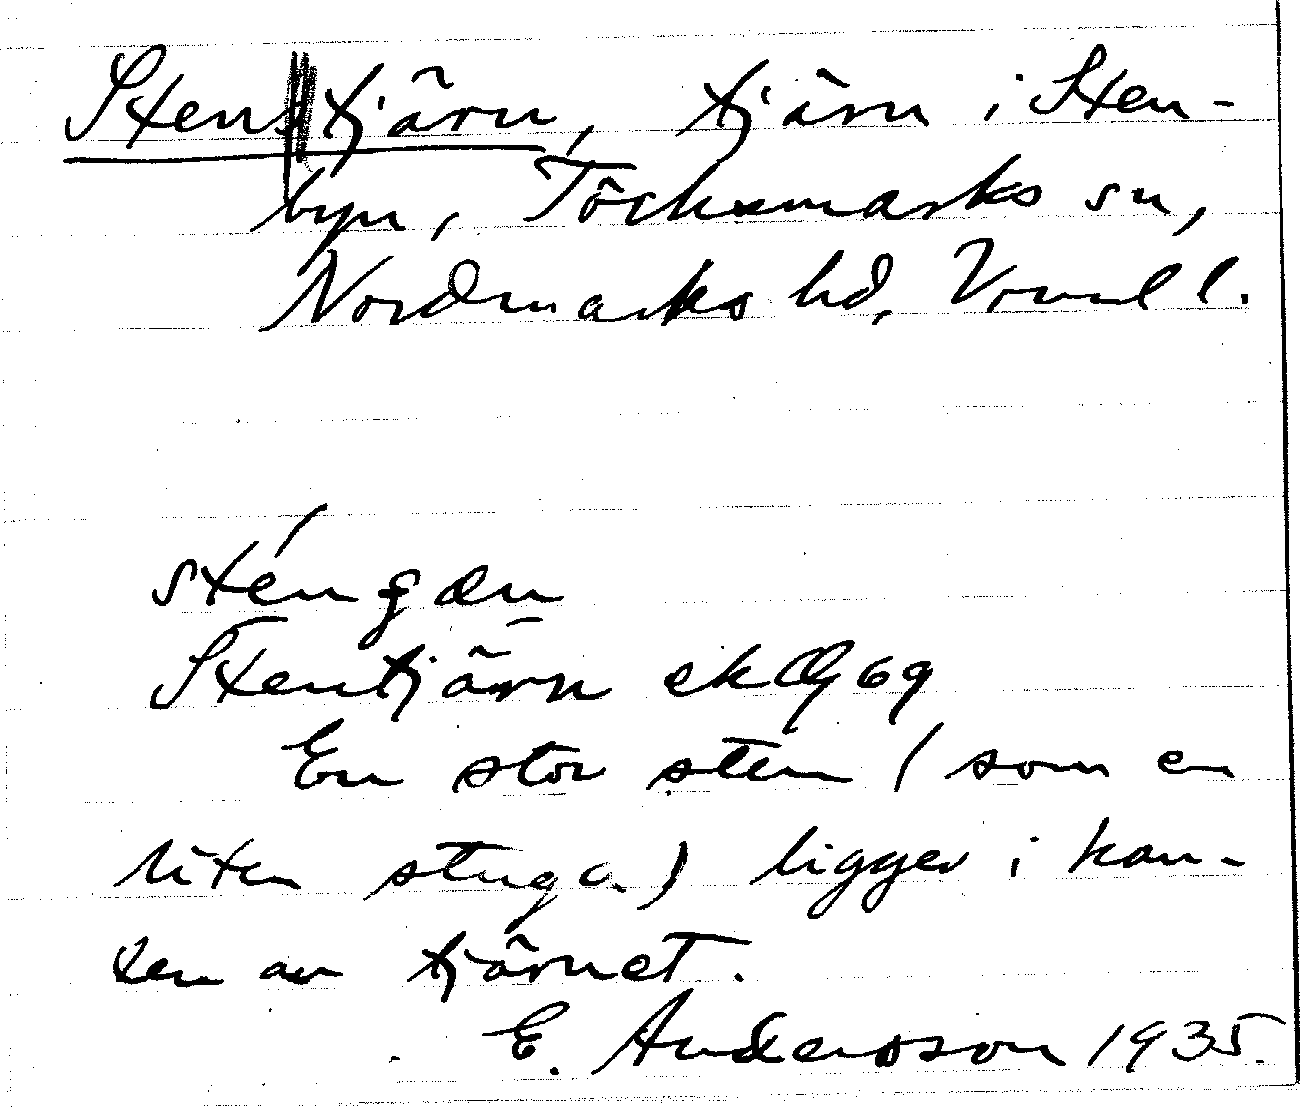 Stentjärn, tjärn i Sten-
byn, Töcksmarks sn,
Nordmarks hd, Vrml l.
Stentjärn ek 69
En stor sten (som en
liten stuga) ligger i kan-
ten av tjärnet.
E. Andersson 1935.